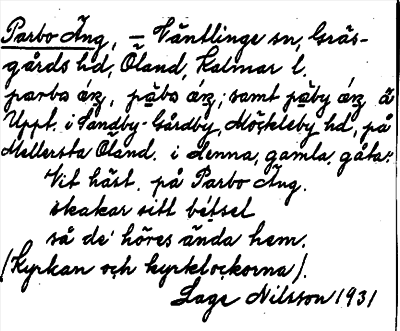 Parbo Äng, – Ventlinge sn, Gräs-
gårds hd, Öland, Kalmar l.
parbo äŋ, päbo äŋ; samt päby äŋ ä
Uppt. i Sandby-Gårdby, Möckleby hd, på
Mellersta Öland. i denna, gamla, gåta:
Vit häst på Parbo Äng.
skakar sitt betsel
så de' höres ända hem.
(Kyrkan och kyrklockorna).
Lage Nilsson 1931